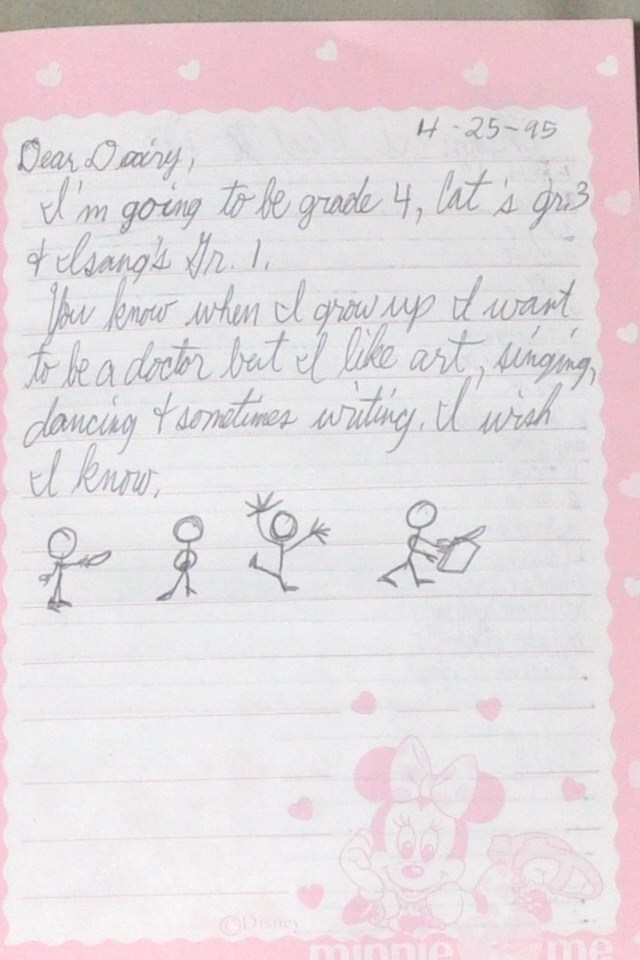 4-25-95
Dear Dairy,
I'm going to be grade 4, Cat's gr.3
& Isang's Gr. 1.
You know when I grow up I want
to be a doctor but I like art, singing,
dancing & sometimes writing. I wish
I know.
©Disney
minnie me